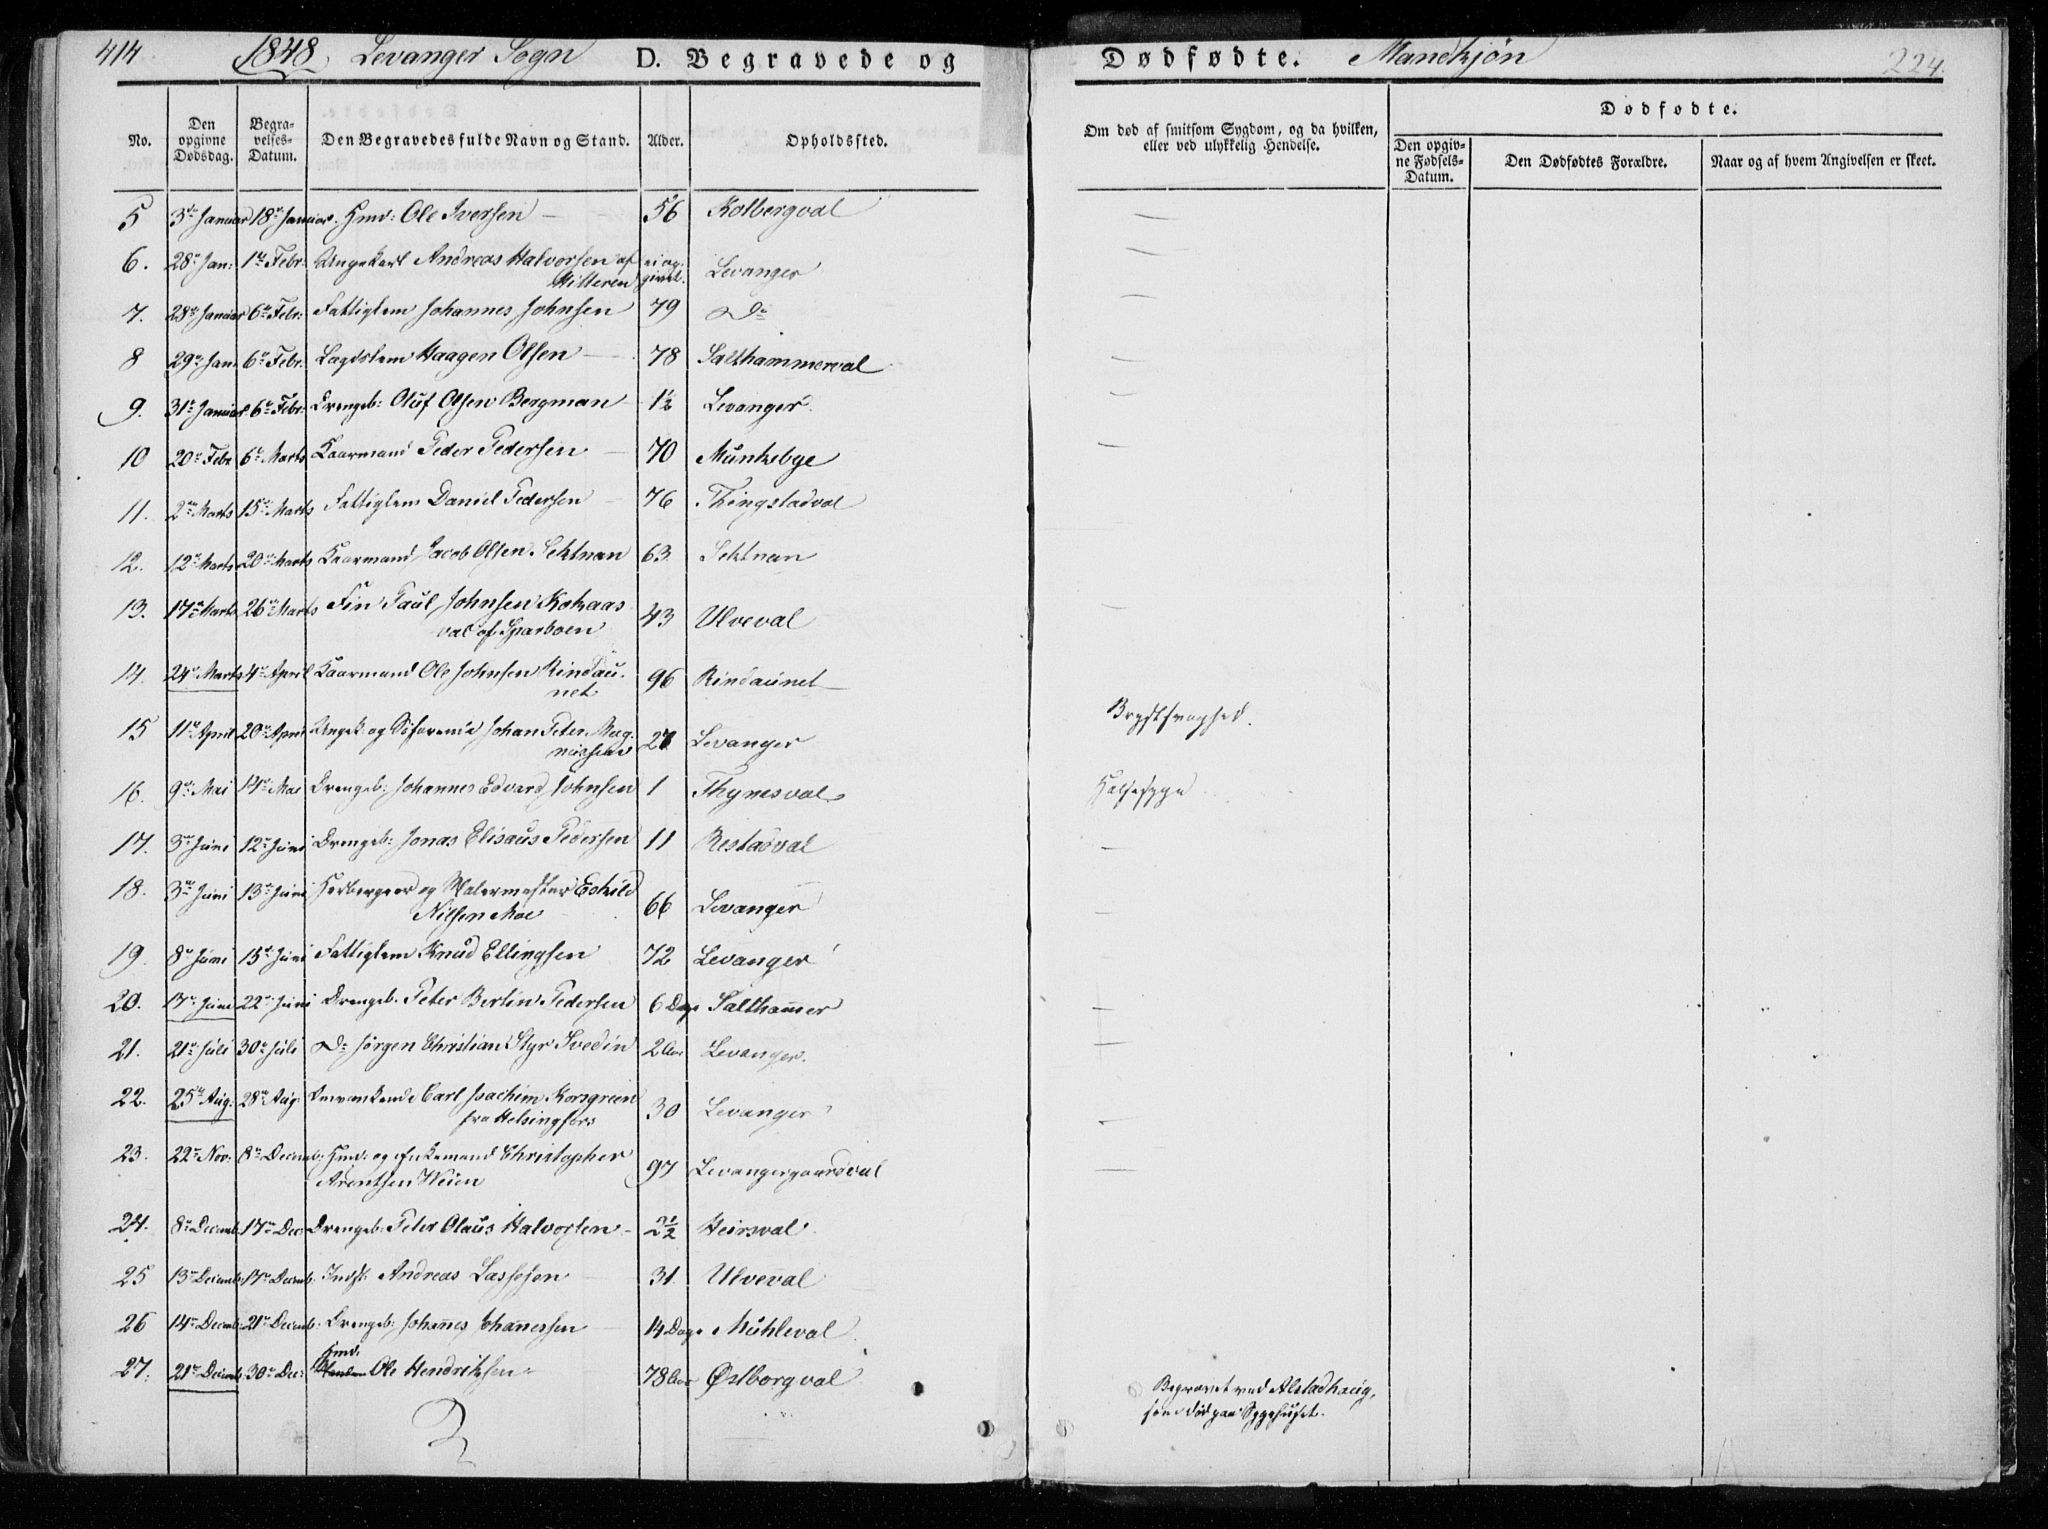 414 1848, Levanger Sogn D. Begravede og Dødfødte. Mandkjøn 224.
No. Den opgivne Dødsdag. Begravelses-Datum. Den Begravedes fulde Navn og Stand. Alder. Opholdssted. Om død af smitsom Sygdom, og da hvilken, eller ved ulykkelig Hendelse. Dødfødte.
Den opgivne Fødsels-Datum. Den Dødfødtes Forældre. Naar og af hvem Angivelsen er skeet.
5 3de Januar 18de Januar. Hmd: Ole Iversen — 56 Kolbergval —
6. 28de Jan: 1te Febr: Ungekarl Andreas Halvorsen af Hitteren ei opgivet. Levanger —
7. 28de Januar 6te Febr: Fattiglem Johannes Johnsen 79 Do —
8 29de Jan: 6te Febr: Lagdslem Haagen Olsen — 78 Salthammerval —
9. 31te Januar 6te Febr: Drengeb: Oluf Olsen Bergman 1½ Levanger. —
10 20de Febr 6te Marts Kaarmand Peder Pedersen — 70 Munkebye —
11. 2den Marts 15de Marts Fattiglem Daniel Pedersen — 76 Thingstadval —
12. 12te Marts 20de Marts Kaarmand Jacob Olsen Sektnan 63 Sektnan —
13. 17de Marts 26de Marts Fin Paul Johnsen Kokaas
val af Sparboen 43 Ulveval —
14. 24de Marts 4de April Kaarmand Ole Johnsen Rindau-
net 96 Rindaunet —
15 11te April 20de April Ungek: og Johan Peter Mag-
nussen 27 Levanger Brystsvaghed.
16. 9de Mai 14de Mai Drengeb: Johannes Edvard Johnsen 1 Thynesval Halssyge
17. 3die Juni 12te Juni Drengeb: Jonas Elisaus Pedersen 11 Restadval —
18. 3die Juni 13de Juni Herbergeer og Malermester Eskild
Nilsen Moe — 66 Levanger —
19. 8de Juni 15de Juni Fattiglem Knud Ellingsen 72 Levanger —
20. 17de Juni 22de Juni Drengeb. Peter Bertin Pedersen 6 Dage Salthammer —
21. 21de Juli 30te Juli Do Jörgen Christian Styr Svedin 2 Aar Levanger. —
22. 25de Aug: 28de Aug: Omvankende Carl Joachim Korsgreen
fra Helsingfors 30 Levanger —
23. 22de Nov: 8de Decemb: Hmd: og Enkemand Christopher
Arentsen Weien 97 Levangergaardsval —
24. 8de Decemb: 17de Dec: Drengeb: Peter Olaus Halvorsen 2½ Heirsval.
25 13de Decemb: 17de Decemb: Indst: Andreas Lassesen — 31. Ulveval
26 14de Decemb: 21de Decemb: Drengeb: Johannes Johanessen — 14 Dage Mühleval.
27. 21de Decemb: 30te Dec: Hmd: Ole Hendriksen 78 Aar Østborgval Begravet ved Alstadhaug,
som død paa Sygehuset.